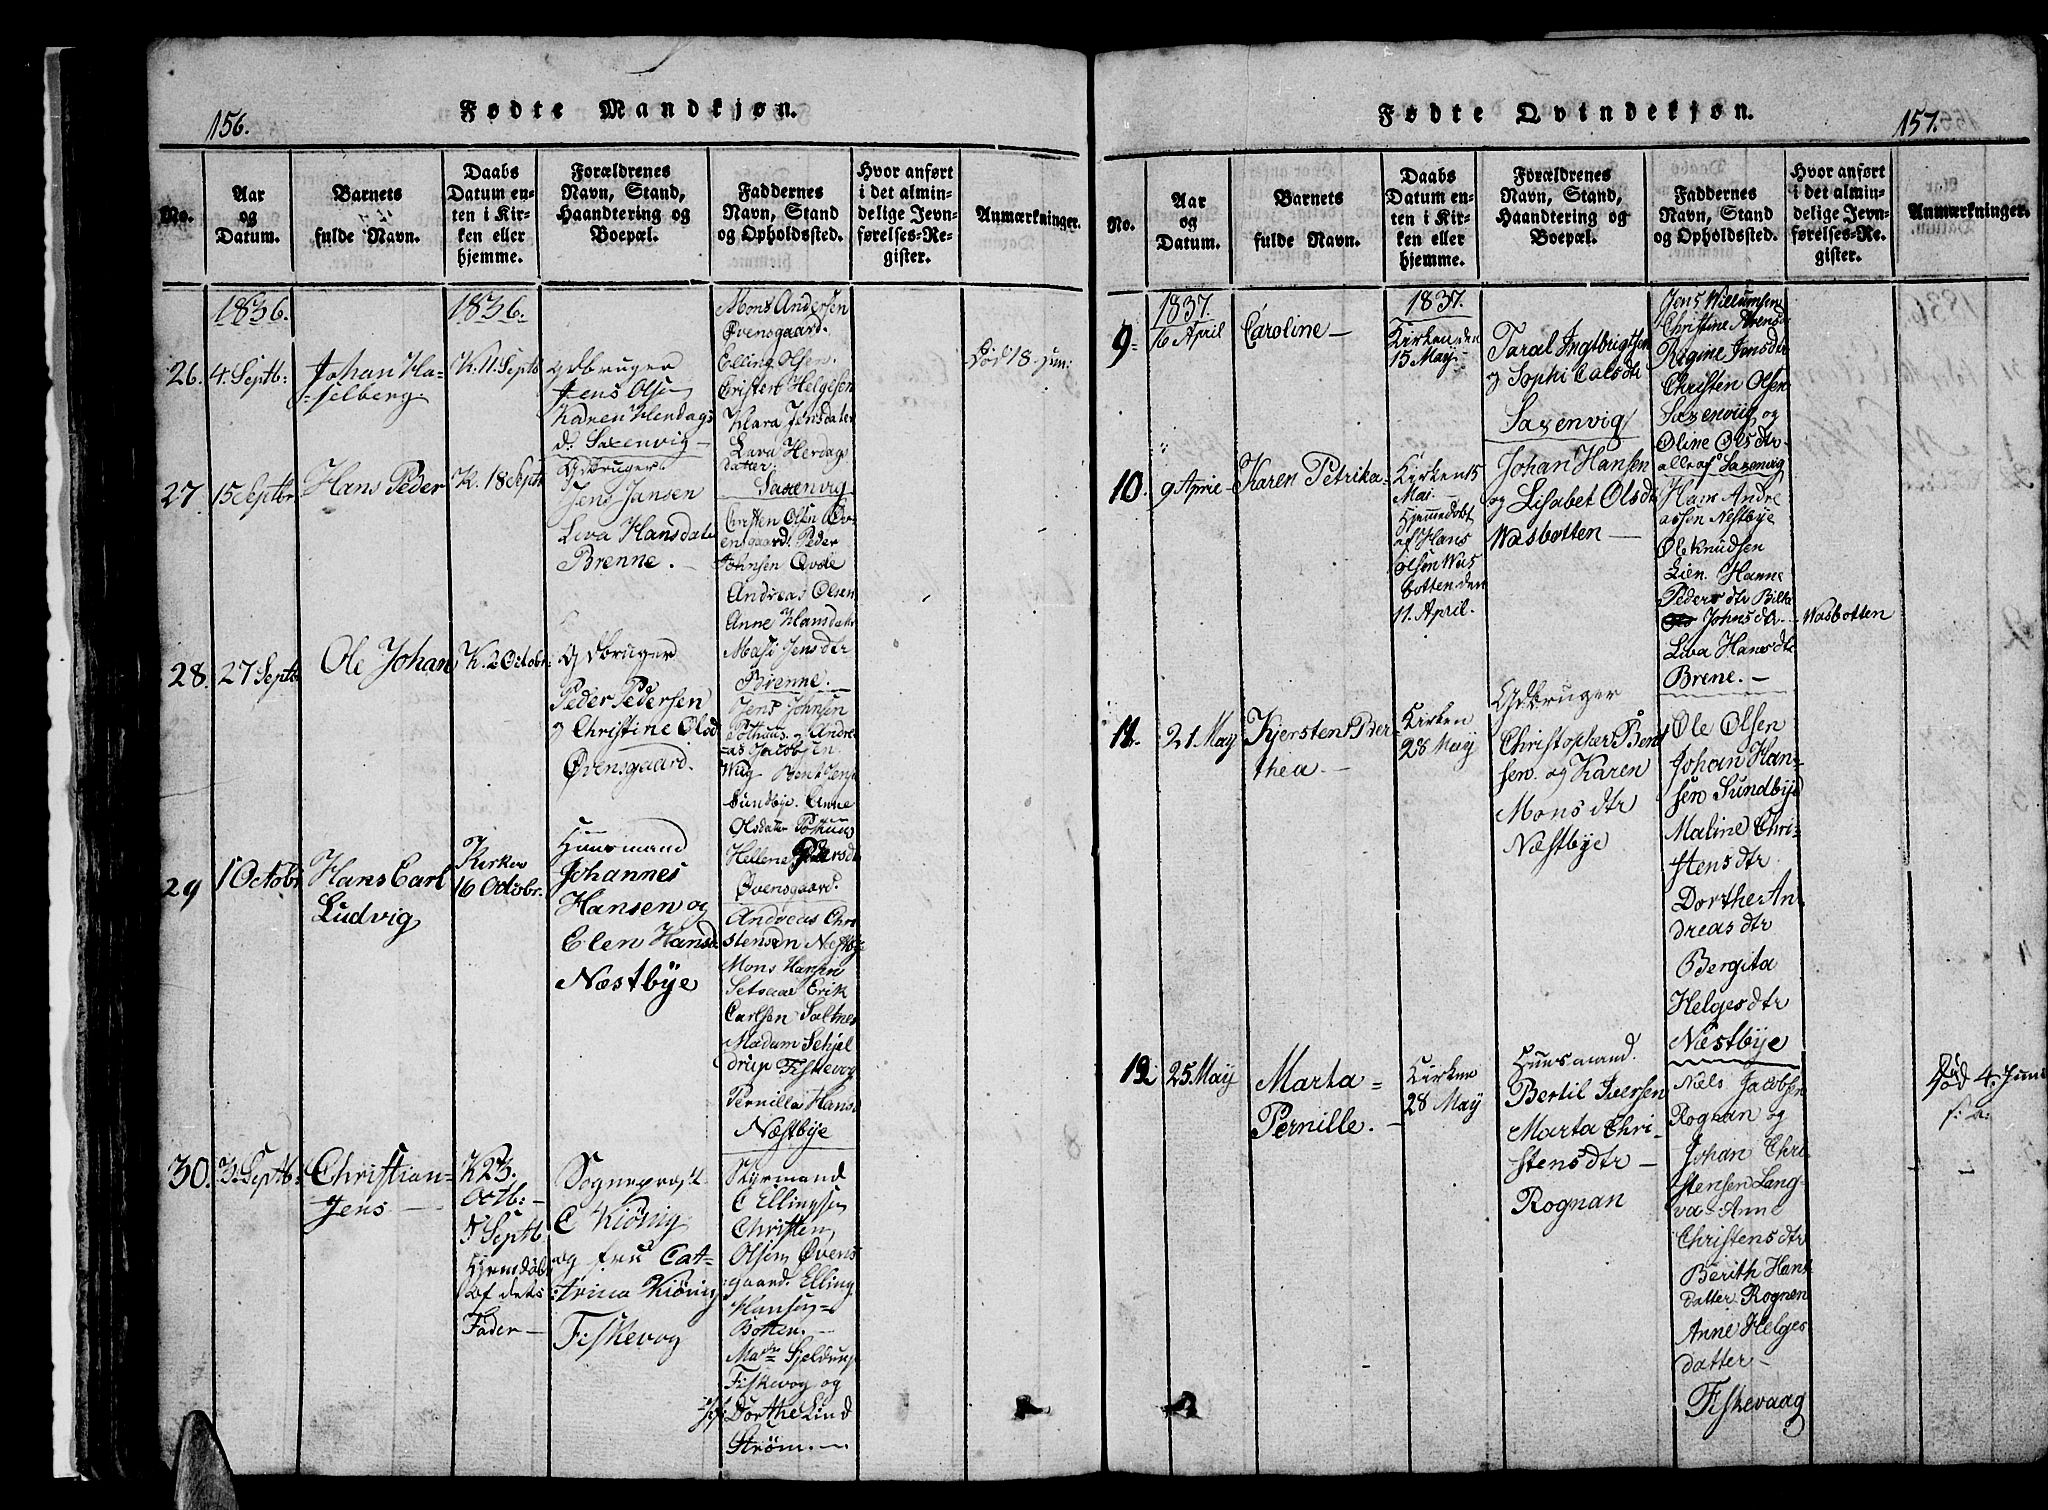 156.
Fødte Mandkjøn.
No.
Aar
og
Datum.
Barnets
fulde Navn.
Daabs
Datum en-
ten i Kir-
ken eller
hjemme.
Forældrenes
Navn, Stand,
Haandtering og
Boepæl.
Faddernes
Navn, Stand
og Opholdssted.
Hvor anført
i det almin-
delige Jevn-
førelses-Re-
gister.
Anmærkninger.
1836.
1836.
26.
4. Septb:
Johan Ha-
-selberg.
K. 11. Septb
Gdbruger
Jens Olsen
Karen Herdags
d. Saxenvig
Mons Andersen
Øvensgaard.
Elling Olsen.
Cristen Helgesen
Klara Jensdater
Lava Herdags
dater.
Saxenvig
Død 18. Jun:
27.
15 Septbr
Hans Peder
K. 18 Septb
Gdbruger.
Jens Jansen
Liva Hansdater
Brenne.
Cristen Olsen Øv-
ensgaard. Peder
Johnsen Qvale
Andreas Olsen
Anne Hansdater
Masi Jensdtr
Brenne.
28.
27 Septb
Ole Johan
K. 2 Octobr:
Gdbruger
Peder Pedersen
og Christine Olsd
Øvensgaard.
Jens Johnsen
Pothuus og Andre
-as Jacobsen
Wug Bent Jensen
Sundbye. Anne
Olsdatter Pothuus
Hellene Pedersdtr
Øvensgaard.
29
1 Octobr
Hans Carl
Ludvig
Kirken
16 Octobr.
Huusmand
Johannes
Hansen og
Elen Hansd.
Næstbye
Andreas Chri
stensen Næstbye
Mons Hansen
Setsaae Erik
Carlsen Saltnes
Madam Schjel
drup Fiskevog
Pernilla Hansd
Næstbye
30.
3. Septb:
Christian-
Jens
K 23.
Octb:
5 Septb.
Hjemdøbt
af dets
Fader
Sogneprest
C Kiönig
og Fru Cat-
trina Kiönig
Fiskevog
Styrmand
C Ellingsen
Christen
Olsen Øvens
gaard. Elling
Hansen
Botten.
Mad. Sjeldrup
Fiskevog og
Dorthe Lind
strøm.
157.
Fødte Qvindekjøn.
No.
Aar
og
Datum.
Barnets
fulde Navn.
Daabs
Datum en-
ten i Kir-
ken eller
hjemme.
Forældrenes
Navn, Stand,
Haandtering og
Boepæl.
Faddernes
Navn, Stand
og Opholdssted.
Hvor anført
i det almin-
delige Jevn-
førelses-Re-
gister.
Anmærkninger.
1837.
1837.
9
16 April
Caroline
Kirken den
15 May
Taral Ingebrigtsen
og Sophi Calsdtr
Saxenvig
Jens Willumsen
Christine Arensd
Regine Jensdtr
Christen Olsen
Saxenviig og
Oline Olsdtr
alle af Saxenvig
10.
9 April
Karen Petrika
Kirken 15
Mai.
Hjemmedøbt
af Hans
Olsen Was
botten den
11. April.
Johan Hansen
og Lisabet Olsdtr
Wasbotten
Hans Andre
assen Nestbye
Ole Knudsen
Lien. Hanne
Peders dtr
Johnsdtr.
Liva Hansdtr
Brene.
Wasbotten
11.
21 May
Kjersten Ber-
thea.
Kirken
28 May
Gdbruger
Christopher Bent
sen. og Karen
Mons dtr
Næstbye
Ole Olsen
Johan Han-
sen Sundbye
Maline Chri-
stens dtr
Dorthe An
dreas dtr
Bergita
Helges dtr
Næstbye
12
25. May
Marta
Pernille.
Kirken
28 May
Huusmand.
Bertil Iversen
Marta Chri-
stens dtr
Rognan
Niels Jacobsen
Rognan og
Johan Chri
stensen Lang
va Anne
Christens dtr
Berith Hans
datter Rognen
Anne Helges
datter
Fiskevaag
Død 4. Juni